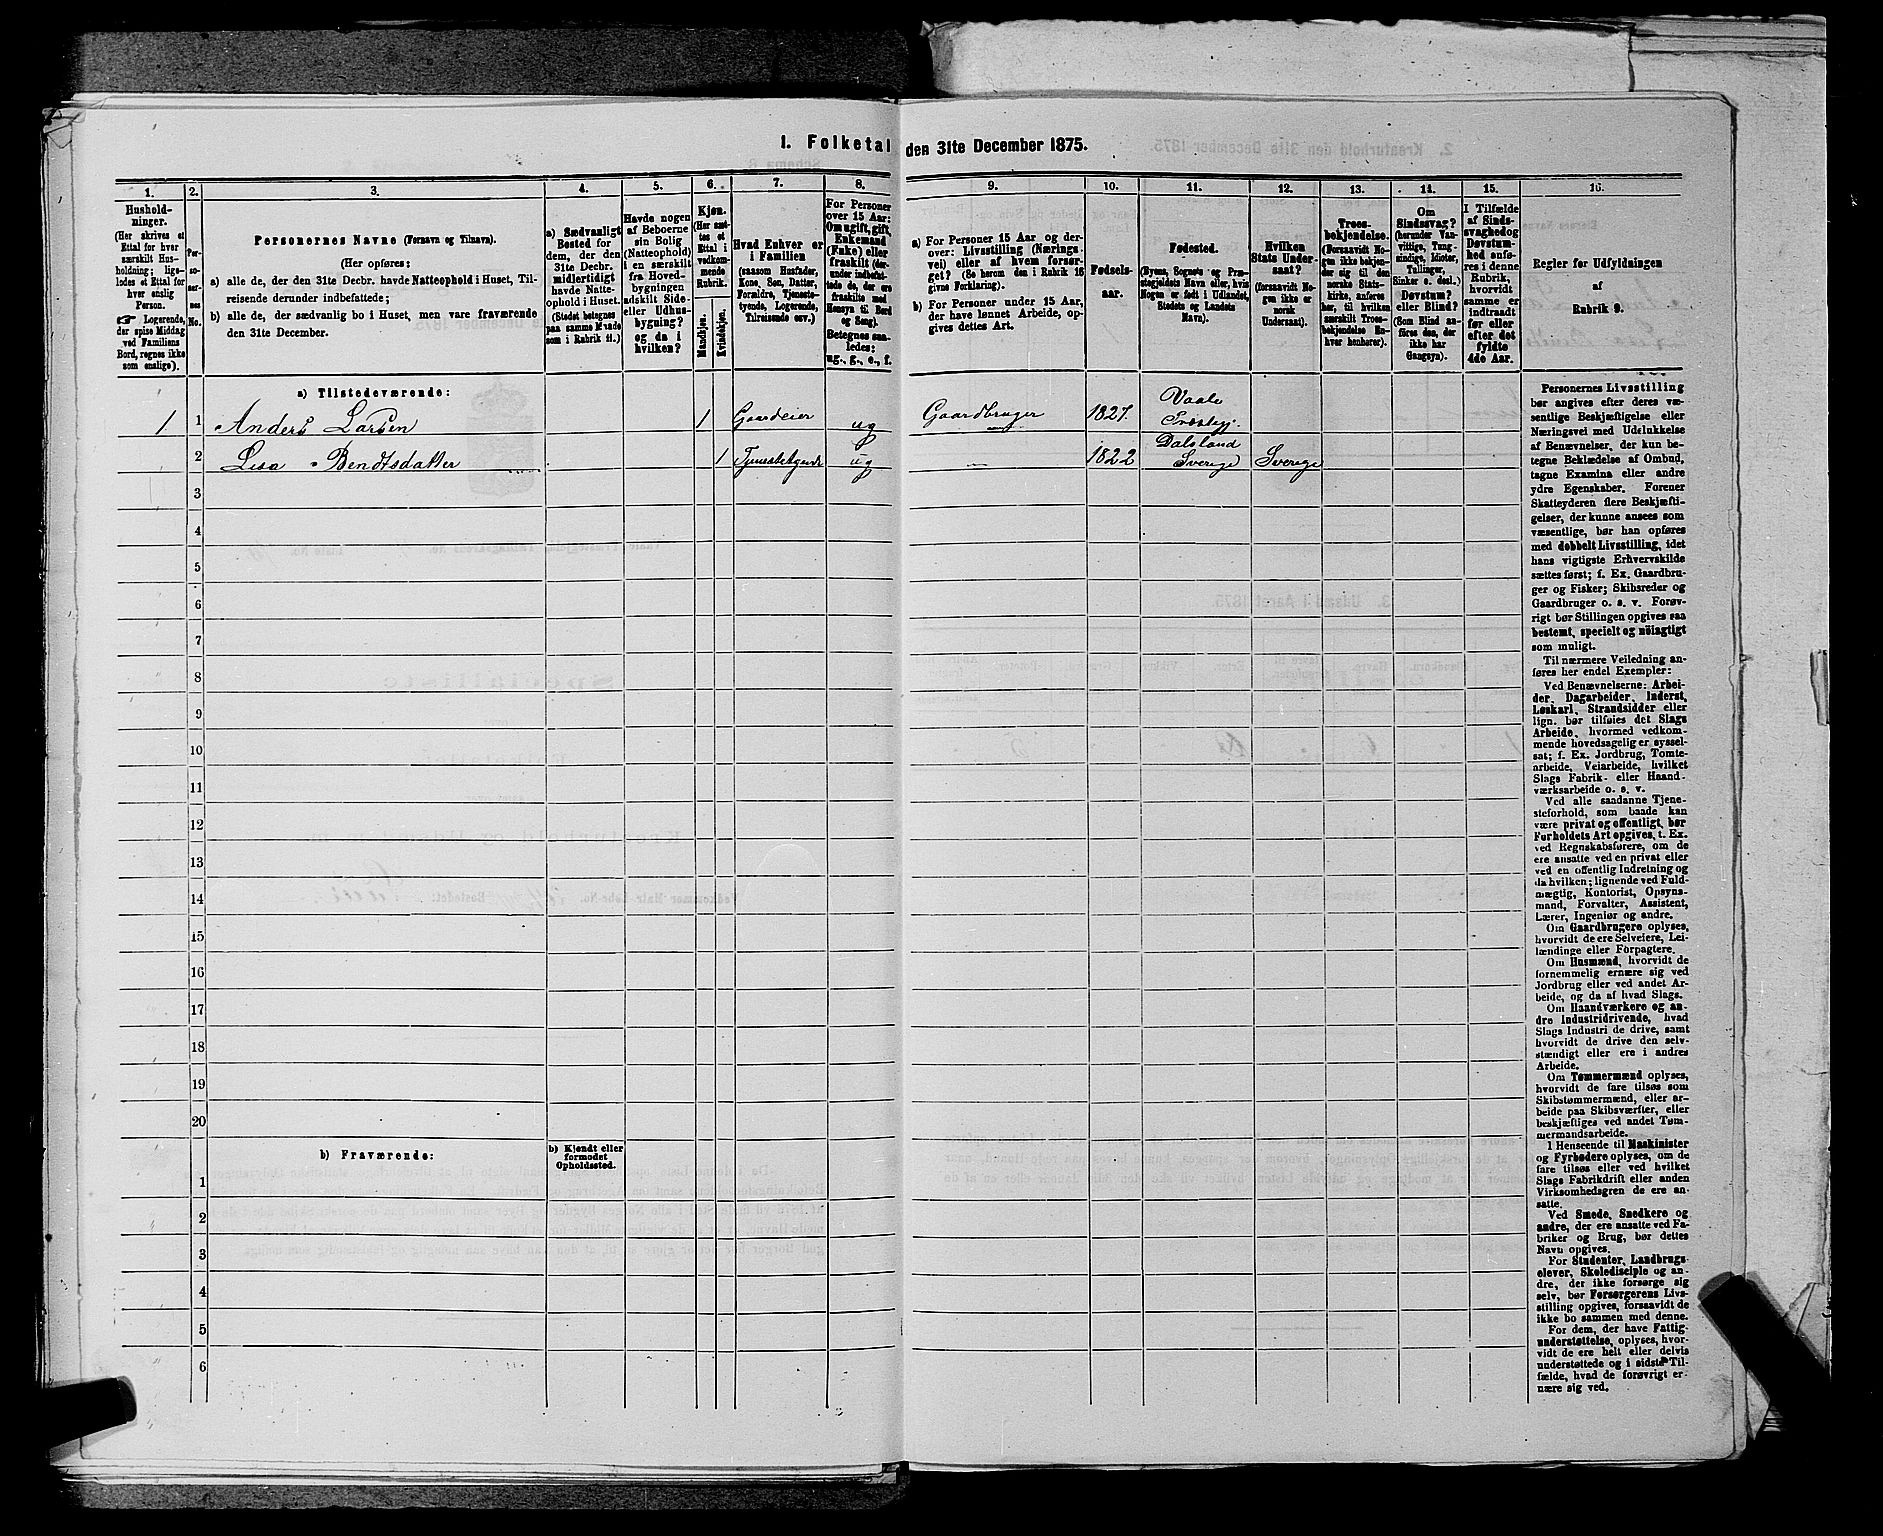 1. Folketal den 31te December 1875.
1. 2. 3. 4. 5. 6. 7. 8. 9. 10. 11. 12. 13. 14. 15. 16.
Hushold-
ninger.
(Her skrives et
Ettal for hver
særskilt Hus-
holdning; lige-
ledes et Ettal for
hver enslig
Person.
Logerende,
der spise Middag
ved Familiens
Bord, regnes ikke
som enslige).
Per-
so-
ner-
nes
No.
Personernes Navne (Fornavn og Tilnavn).
(Her opføres:
a) alle de, der den 31te Decbr. havde Natteophold i Huset, Til-
reisende derunder indbefattede;
b) alle de, der sædvanlig bo i Huset, men vare fraværende
den 31te December.
a) Sædvanligt
Bosted for
dem, der den
31te Decbr.
midlertidigt
havde Natte-
ophold i Huset.
(Stedet betegnes
paa samme Maade
som i Rubrik 11.)
Havde nogen
af Beboerne
sin Bolig
(Natteophold)
i en særskilt
fra Hoved-
bygningen
adskilt Side-
eller Udhus-
bygning?
og da i
hvilken?
Kjøn.
(Her sæt-
tes et
Ettal i
vedkom-
mende
Rubrik.
Mandkjøn.
Kvindekjøn.
Hvad Enhver er
i Familien
(saasom Husfader,
Kone, Søn, Datter,
Forældre, Tjeneste-
tyende, Logerende,
Tilreisende osv.)
For Personer
over 15 Aar:
Om ugift, gift,
Enkemand
(Enke) eller
fraskilt (der-
under indbefat-
tede de, der ere
fraskilte med
Hensyn til Bord
og Seng).
Betegnes saa-
ledes:
ug., g., e., f.
a) For Personer 15 Aar og der-
over: Livsstilling (Nærings-
vei) eller af hvem forsør-
get? (Se herom den i Rubrik 16
givne Forklaring).
b) For Personer under 15 Aar,
der have lønnet Arbeide, op-
gives dettes Art.
Fødsels-
aar.
Fødested.
(Byens, Sognets og Præ-
stegjeldets Navn eller, hvis
Nogen er født i Udlandet,
Stedets og Landets
Navn).
Hvilken
Stats Under-
saat?
(forsaavidt No-
gen ikke er
norsk
Undersaat).
Troes-
bekjendelse.
(Forsaavidt No-
gen ikke bekjen-
der sig til den
norske Stats-
kirke, anføres
her, til hvilken
særskilt Troes-
bekjendelse En-
hver henhører).
Om
Sindssvag?
(herunder Van-
vittige, Tung-
sindige, Idioter,
Tullinger,
Sinker o. desl.)
Døvstum?
eller Blind?
(Som Blind an-
føres den, der
ikke har
Gangsyn).
I Tilfælde
af Sinds-
svaghed og
Døvstum-
hed anfø-
res i denne
Rubrik,
hvorvidt
samme er
indtraadt
før eller
efter det
fyldte
4de Aar.
Regler for Udfyldningen
af
Rubrik 9.
a) Tilstedeværende:
1 1 Anders Larsen 1 Gaardeier ug Gaardbruger 1827. Vaale Præstegj.
2 Lisa Bendtsdatter 1 ug 1822 Dalsland Sverige Sverige
3
4
5
6
7
8
9
10
11
12
13
14
15
16
17
18
19
20
b) Fraværende:
b) Kjendt eller
formodet
Opholdssted.
1
2
3
4
5
6
Personernes Livsstilling
bør angives efter deres væ-
sentlige Beskjæftigelse eller
Næringsvei med Udelukkelse
af Benævnelser, der kun be-
tegne Beklædelse af Ombud,
tagne Examina eller andre
ydre Egenskaber. Forener
Skatteyderen flere Beskjæfti-
gelser, der kunne ansees som
væsentlige, bør han opføres
med dobbelt Livsstilling, idet
hans vigtigste Erhvervskilde
sættes først; f. Ex. Gaardbru-
ger og Fisker; Skibsreder og
Gaardbruger o. s. v. Forøv-
rigt bør Stillingen opgives saa
bestemt, specielt og nøiagtigt
som muligt.
Til nærmere Veiledning an-
føres her endel Exempler:
Ved Benævnelserne: Arbei-
der, Dagarbeider, Inderst,
Løskarl, Strandsidder eller
lign. bør tilføies det Slags
Arbeide, hvormed vedkom-
mende hovedsagelig er syssel-
sat; f. Ex. Jordbrug, Tomte-
arbeide, Veiarbeide, hvilket
Slags Fabrik- eller Haand-
værksarbeide o. s. v.
Ved alle saadanne Tjene-
steforhold, som baade kan
være privat og offentligt, bør
Forholdets Art opgives, t. Ex.
ved Regnskabsførere, om de
ere ansatte ved en privat eller
ved en offentlig Indretning og
da hvilken; lignende ved Fuld-
mægtig, Kontorist, Opsyns-
mand, Forvalter, Assistent,
Lærer, Ingeniør og andre.
Om Gaardbrugere oplyses,
hvorvidt de ere Selveiere, Lei-
lændinge eller Forpagtere.
Om Husmænd, hvorvidt de
fornemmelig ernære sig ved
Jordbrug eller ved andet Ar-
beide, og da af hvad Slags.
Om Haandværkere og an-
dre Industridrivende, hvad
Slags Industri de drive, samt
hvorvidt de drive den selv-
stændigt eller ere i andres
Arbeide.
Om Tømmermænd oplyses,
hvorvidt de fare tilsøs som
Skibstømmermænd, eller ar-
beide paa Skibsværfter, eller
beskjæftiges ved andet Tøm-
mermandsarbeide.
I Henseende til Maskinister
og Fyrbødere oplyses, om de
fare tilsøs eller ved hvilket
Slags Fabrikdrift eller anden
Virksomhedsgren de ere an-
satte.
Ved Smede, Snedkere og
andre, der ere ansatte ved Fa-
briker og Brug, bør dettes
Navn opgives.
For Studenter, Landbrugs-
elever, Skoledisciple og an-
dre, der ikke forsørge sig
selv, bør Forsørgerens Livs-
stilling opgives, forsaavidt de
ikke bo sammen med denne.
For dem, der have Fattig-
understøttelse, oplyses, hvor-
vidt de ere helt eller delvis
understøttede og i sidste Til-
fælde, hvad de forøvrigt er-
nære sig ved.